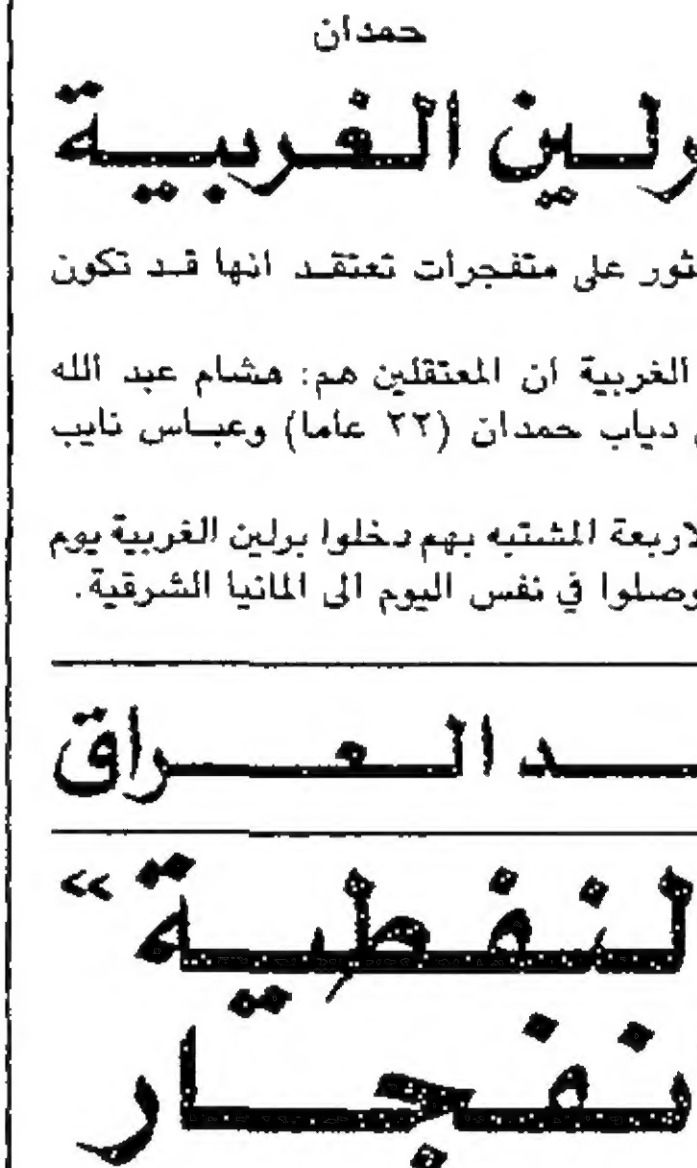 حمدان
رلين الغربية
ثور على متفجرات تعتقد انها قد تكون
الغربية ان المعتقلين هم: هشام عبد الله
دياب حمدان (٢٢ عاما) وعباس نايب
لاربعة المشتبه بهم دخلوا برلين الغربية يوم
وصلوا في نفس اليوم الى المانيا الشرقية.
ـد العراق
لنفطية »
نفجار